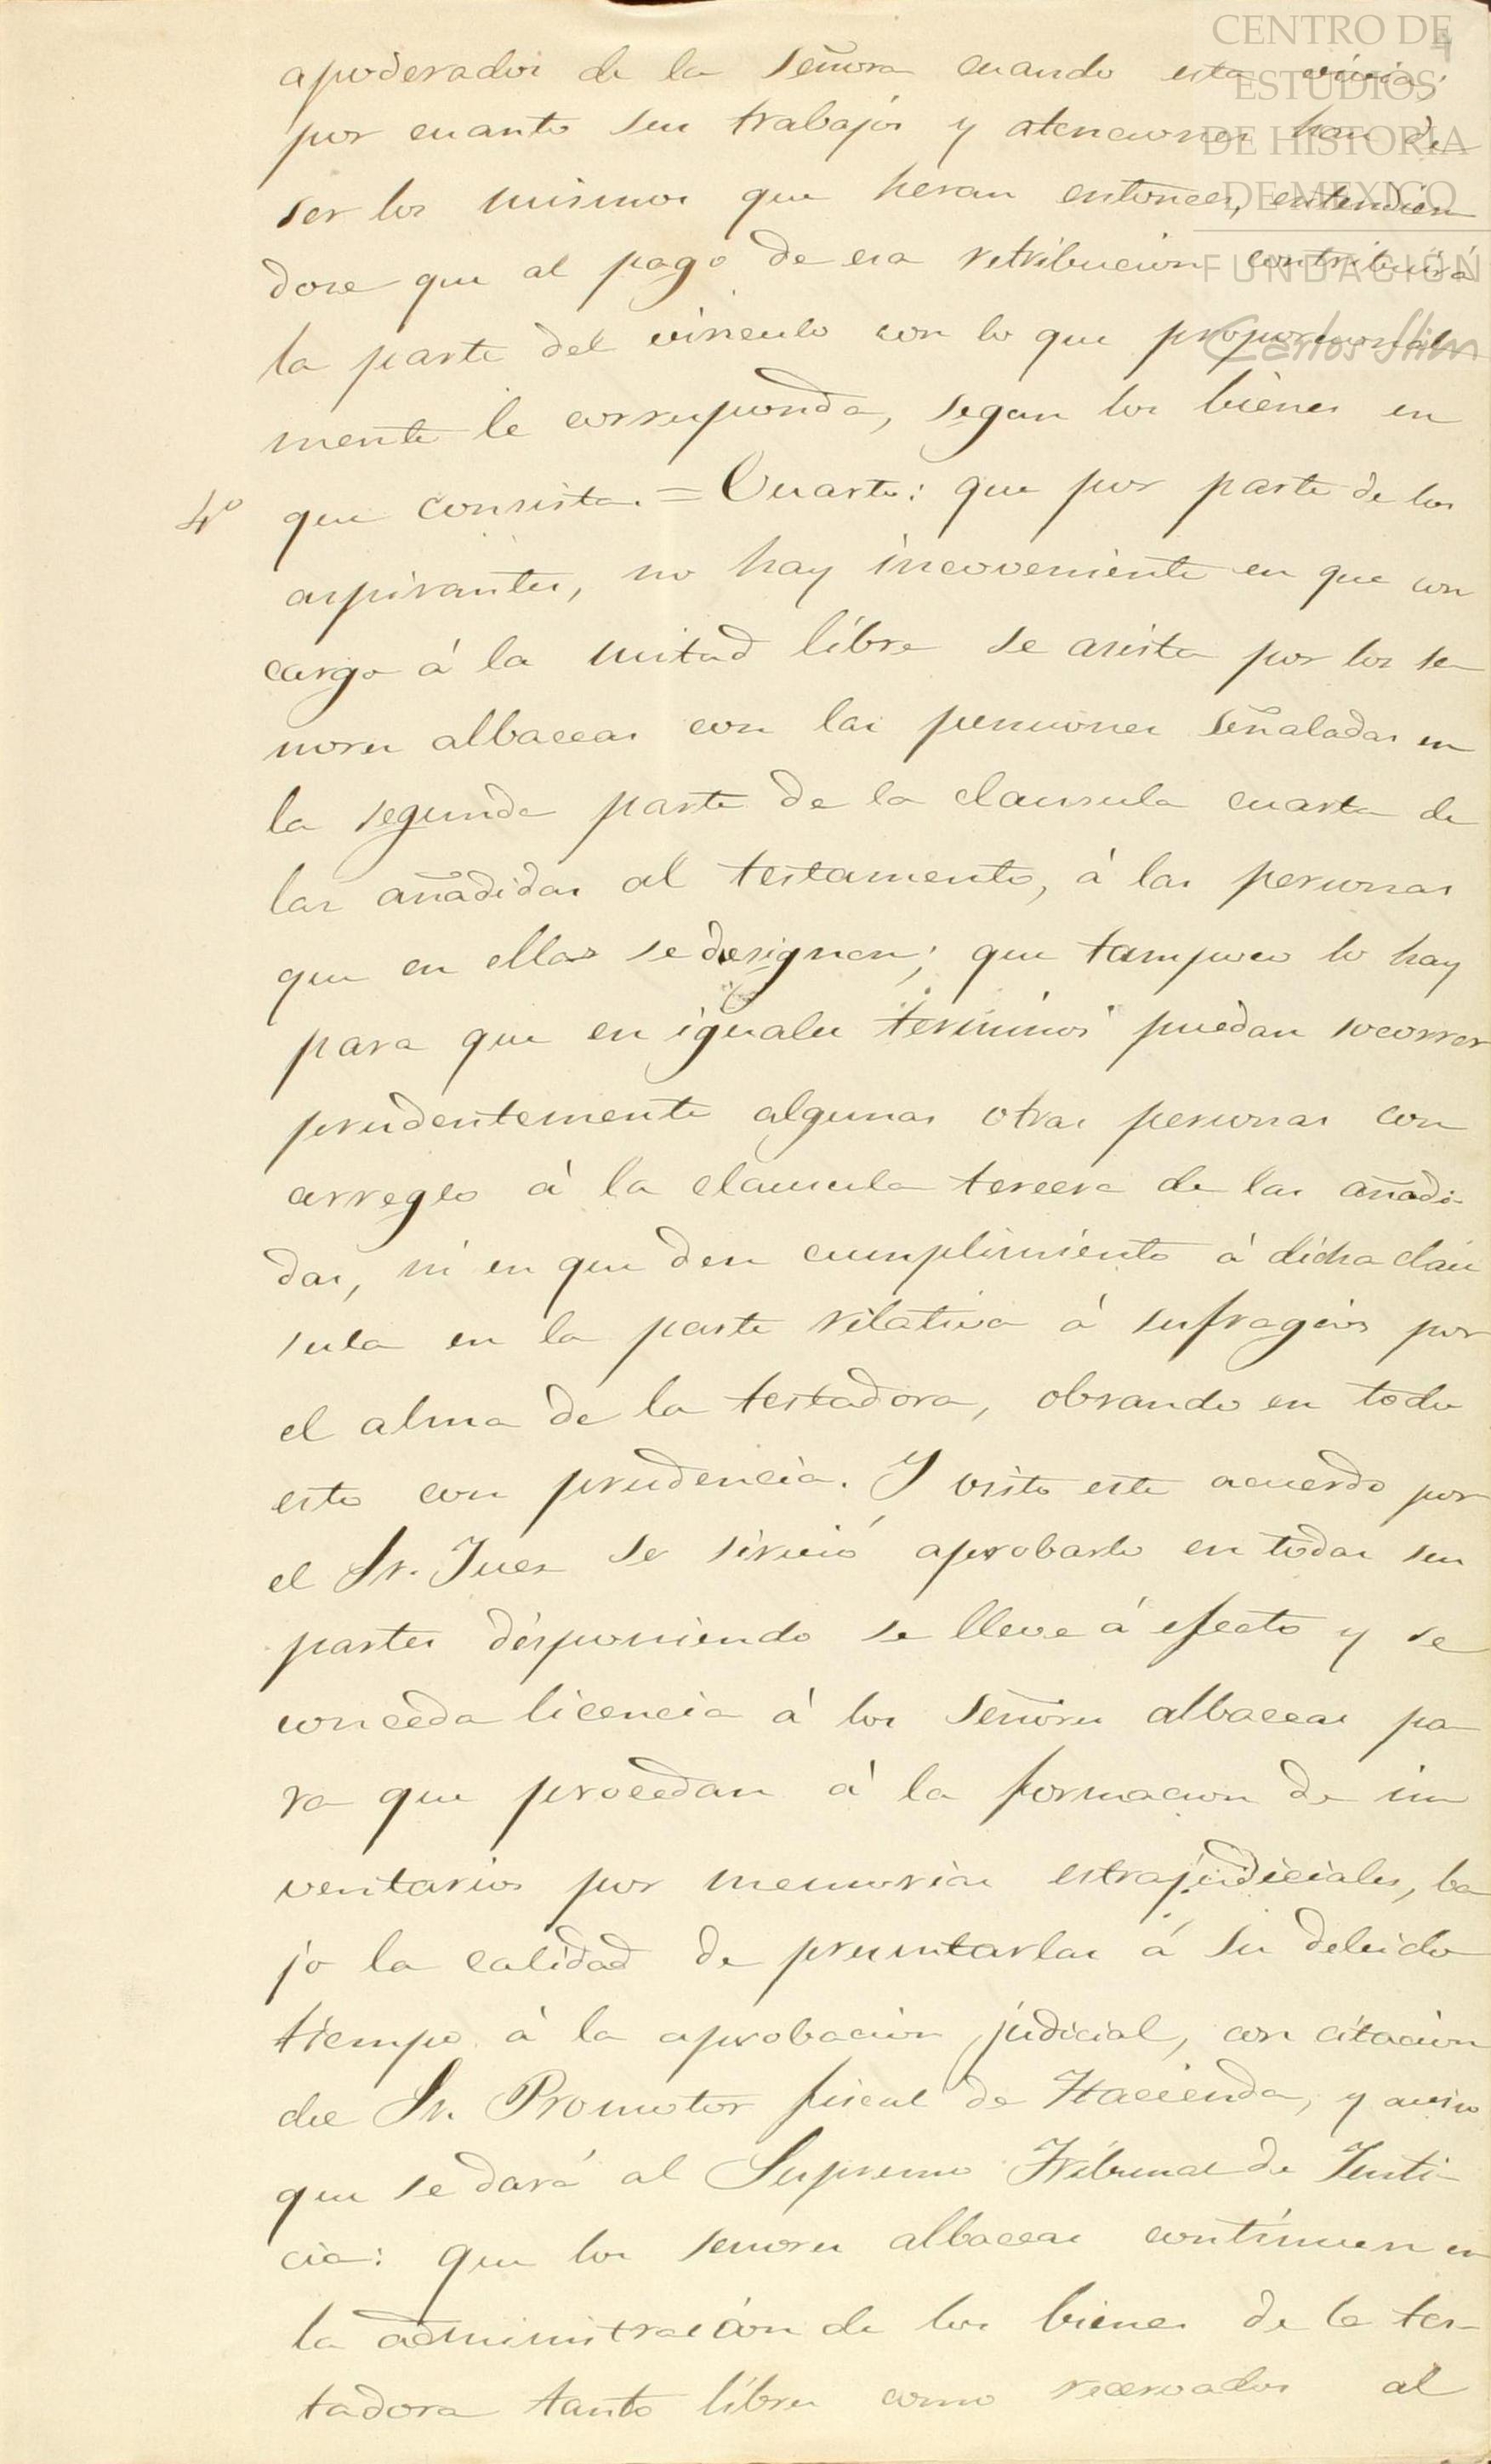 CENTRO DE
ESTUDIOS
DE HISTORIA
DE MEXICO
FUNDACIÓN
Carlos Slim
4
apoderados de la Señora cuando esta vivia;
por cuanto sus trabajos y atenciones han de
ser los mismos que heran entonces, entendien
dose que al pago de esa retribucion contribuirá
la parte del vinculo con lo que proporcional
mente le corresponda, segun los bienes en
4º que consista. = Cuarto: que por parte de los
aspirantes, no hay incoveniente en que con
cargo á la mitad libre se asista por los se
nores albaceas con las pensiones señaladas en
la segunda parte de la clausula cuarta de
las añadidas al testamento, á las personas
que en ellas se designen; que tampoco lo hay
para que en iguales terminos puedan socorrer
prudentemente algunas otras personas con
arreglo á la clausula tercera de las añadi-
das, ni en que den cumplimiento á dicha clau
sula en la parte relativa á sufragios por
el alma de la testadora, obrando en todo
esto con prudencia. Y visto este acuerdo por
el Sr. Juez se sirvió aprobarlo en todas sus
partes disponiendo se lleve á efecto y se
conceda licencia á los Señores albaceas pa
ra que procedan á la formacion de in
ventarios por memorias estrajudiciales, ba
jo la calidad de presentarlas á su debido
tiempo á la aprobacion judicial, con citacion
del Sr. Promotor fiscal de Hacienda, y aviso
que se dará al Supremo Tribunal de Justi-
cia: que los senores albaceas continuen en
la administración de los bienes de la tes-
tadora tanto libres como reservados al